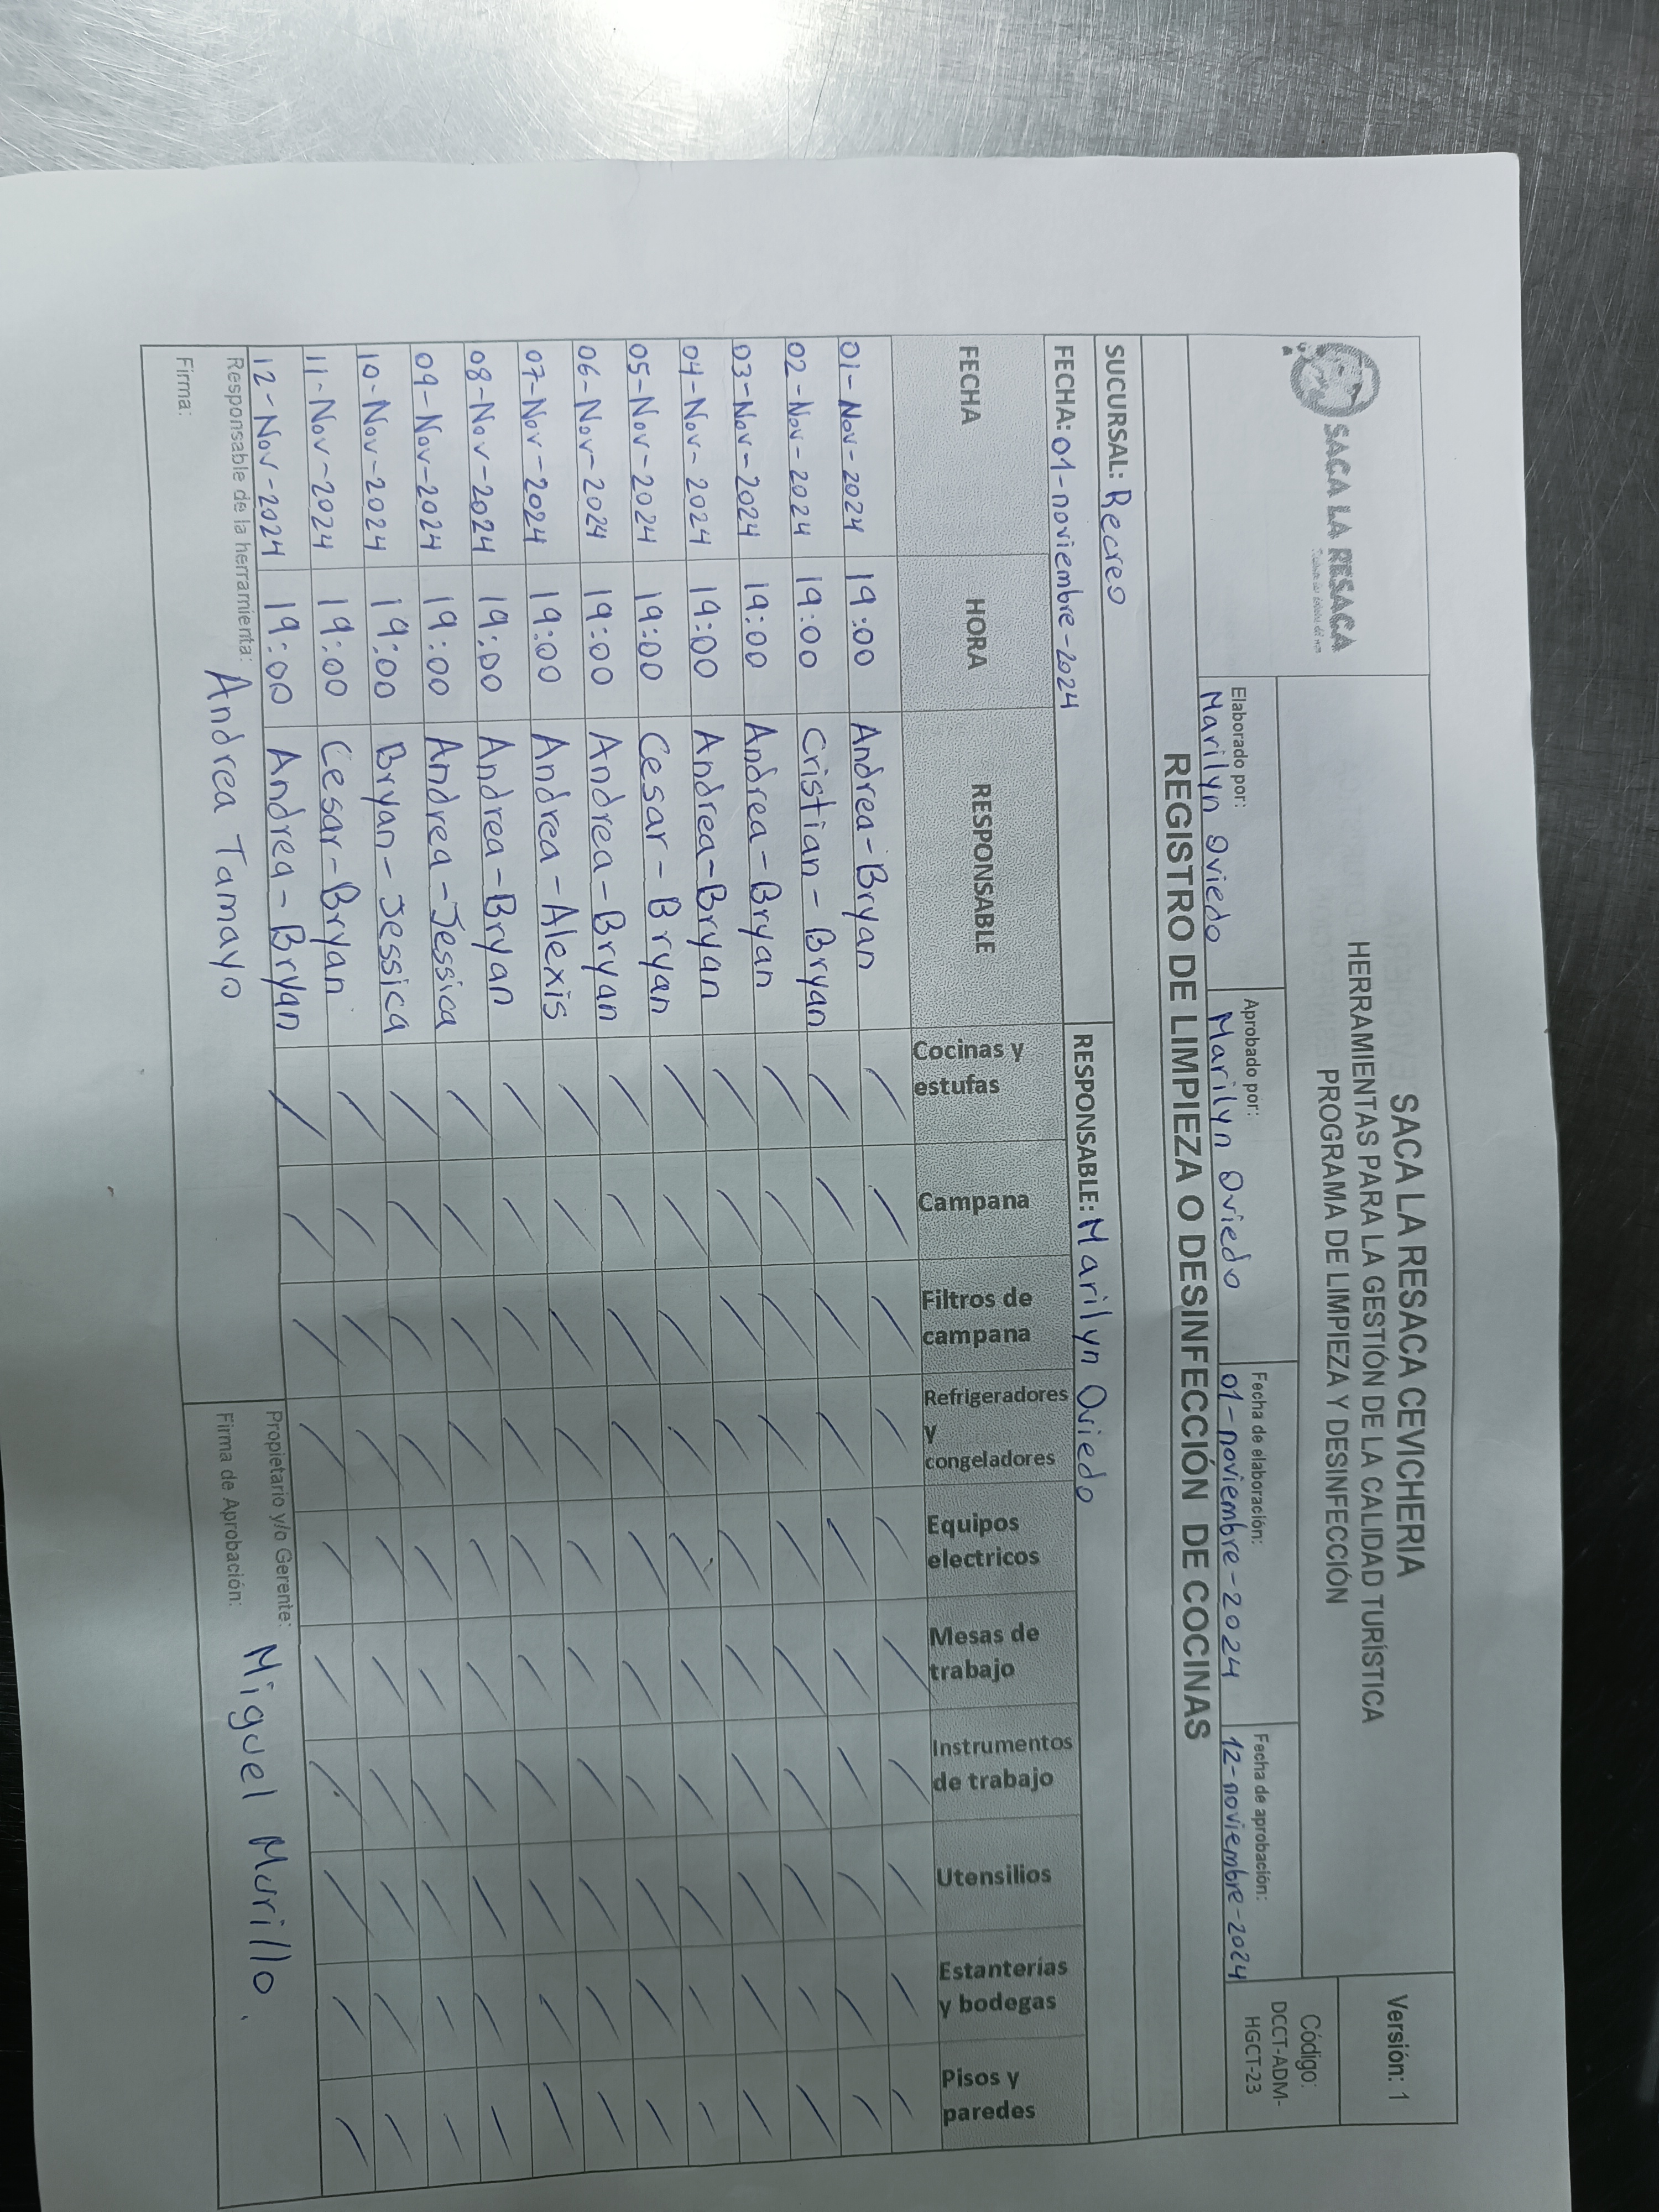 SACA LA RESACA
SACA LA RESACA CEVICHERIA
HERRAMIENTAS PARA LA GESTIÓN DE LA CALIDAD TURÍSTICA
PROGRAMA DE LIMPIEZA Y DESINFECCIÓN
Versión: 1
Código:
DCCT-ADM-
HGCT-23
Elaborado por:
Marilyn Oviedo
Aprobado por:
Marilyn Oviedo
Fecha de elaboración:
01-noviembre-2024
Fecha de aprobación:
12-noviembre-2024
REGISTRO DE LIMPIEZA O DESINFECCIÓN DE COCINAS
SUCURSAL: Recreo
FECHA: 01-noviembre-2024 RESPONSABLE: Marilyn Oviedo
FECHA HORA RESPONSABLE Cocinas y estufas Campana Filtros de campana Refrigeradores y congeladores Equipos electricos Mesas de trabajo Instrumentos de trabajo Utensilios Estanterías y bodegas Pisos y paredes
01-Nov-2024 19:00 Andrea-Bryan / / / / / / / / / /
02-Nov-2024 19:00 Cristian-Bryan / / / / / / / / / /
03-Nov-2024 19:00 Andrea-Bryan / / / / / / / / / /
04-Nov-2024 19:00 Andrea-Bryan / / / / / / / / / /
05-Nov-2024 19:00 Cesar-Bryan / / / / / / / / / /
06-Nov-2024 19:00 Andrea-Bryan / / / / / / / / / /
07-Nov-2024 19:00 Andrea-Alexis / / / / / / / / / /
08-Nov-2024 19:00 Andrea-Bryan / / / / / / / / / /
09-Nov-2024 19:00 Andrea-Jessica / / / / / / / / / /
10-Nov-2024 19:00 Bryan-Jessica / / / / / / / / / /
11-Nov-2024 19:00 Cesar-Bryan / / / / / / / / / /
12-Nov-2024 19:00 Andrea-Bryan / / / / / / / / / /
Responsable de la herramienta: Andrea Tamayo
Propietario y/o Gerente: Miguel Murillo.
Firma:
Firma de Aprobación: